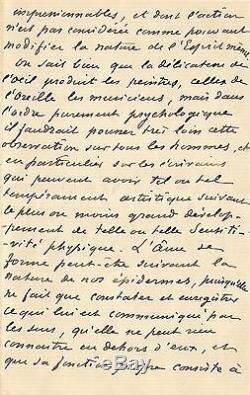 impressionnables, et dont l'action
n'est pas considérée comme pouvant
modifier la nature de l'Esprit même
On sait bien que la délicatesse de
l'œil produit les peintres, celles de
l'Oreille les musiciens, mais dans
l'ordre purement psychologique
il faudrait pousser très loin cette
observation sur tous les hommes, et
en particulier sur les écrivains
qui peuvent avoir tel ou tel
tempérament artistique suivant
le plus ou moins grand dévelop-
pement de telle ou telle sensiti-
vité physique. L'âme se
forme peut-être suivant la
nature de nos épidermes, puisqu'elle
ne fait que constater et enregistrer
ce qui lui est communiqué par
les sens, qu'elle ne peut rien
connaître en dehors d'eux, et
que sa fonction propre consiste à